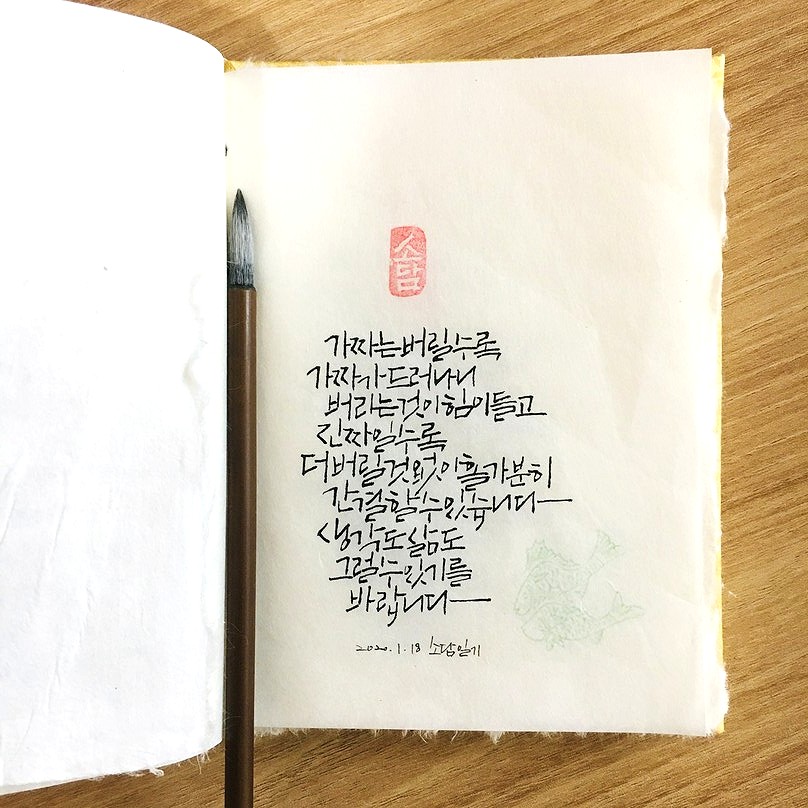 소담
가짜는 버릴수록
가짜가 드러나니
버리는 것이 힘이 들고
진짜일수록
더 버릴 것 없이 홀가분히
간결할 수 있습니다
생각도 삶도
그럴 수 있기를
바랍니다
2020.1.18 소담일기